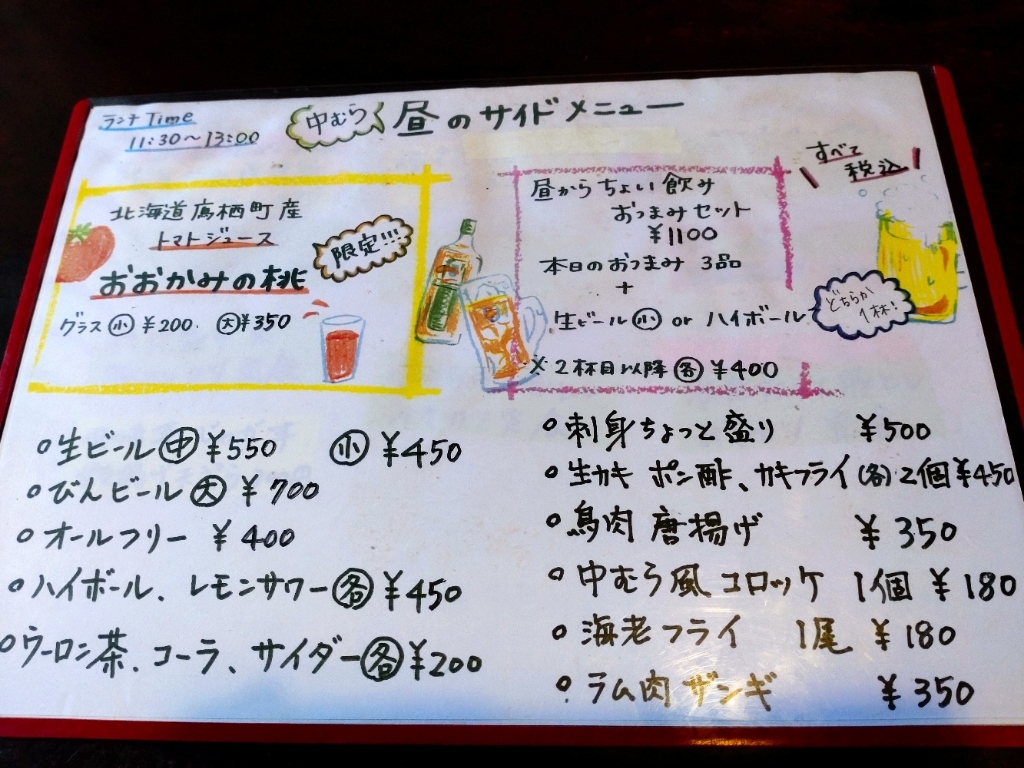 ランチTime
11:30～13:00
中むら 昼のサイドメニュー
すべて
税込
北海道鷹栖町産
トマトジュース
限定!!!
おおかみの桃
グラス 小 ¥200. 大 ¥350
昼からちょい飲み
おつまみセット
¥1100
本日のおつまみ 3品
+
生ビール 小 or ハイボール
どちらか
1杯!
※2杯目以降 各 ¥400
○生ビール 中 ¥550 小 ¥450
○びんビール 大 ¥700
○オールフリー ¥400
○ハイボール、レモンサワー 各 ¥450
○ウーロン茶、コーラ、サイダー 各 ¥200
○刺身ちょっと盛り ¥500
○生カキ ポン酢、カキフライ(各)2個 ¥450
○鳥肉 唐揚げ ¥350
○中むら風 コロッケ 1個 ¥180
○海老フライ 1尾 ¥180
○ラム肉 ザンギ ¥350